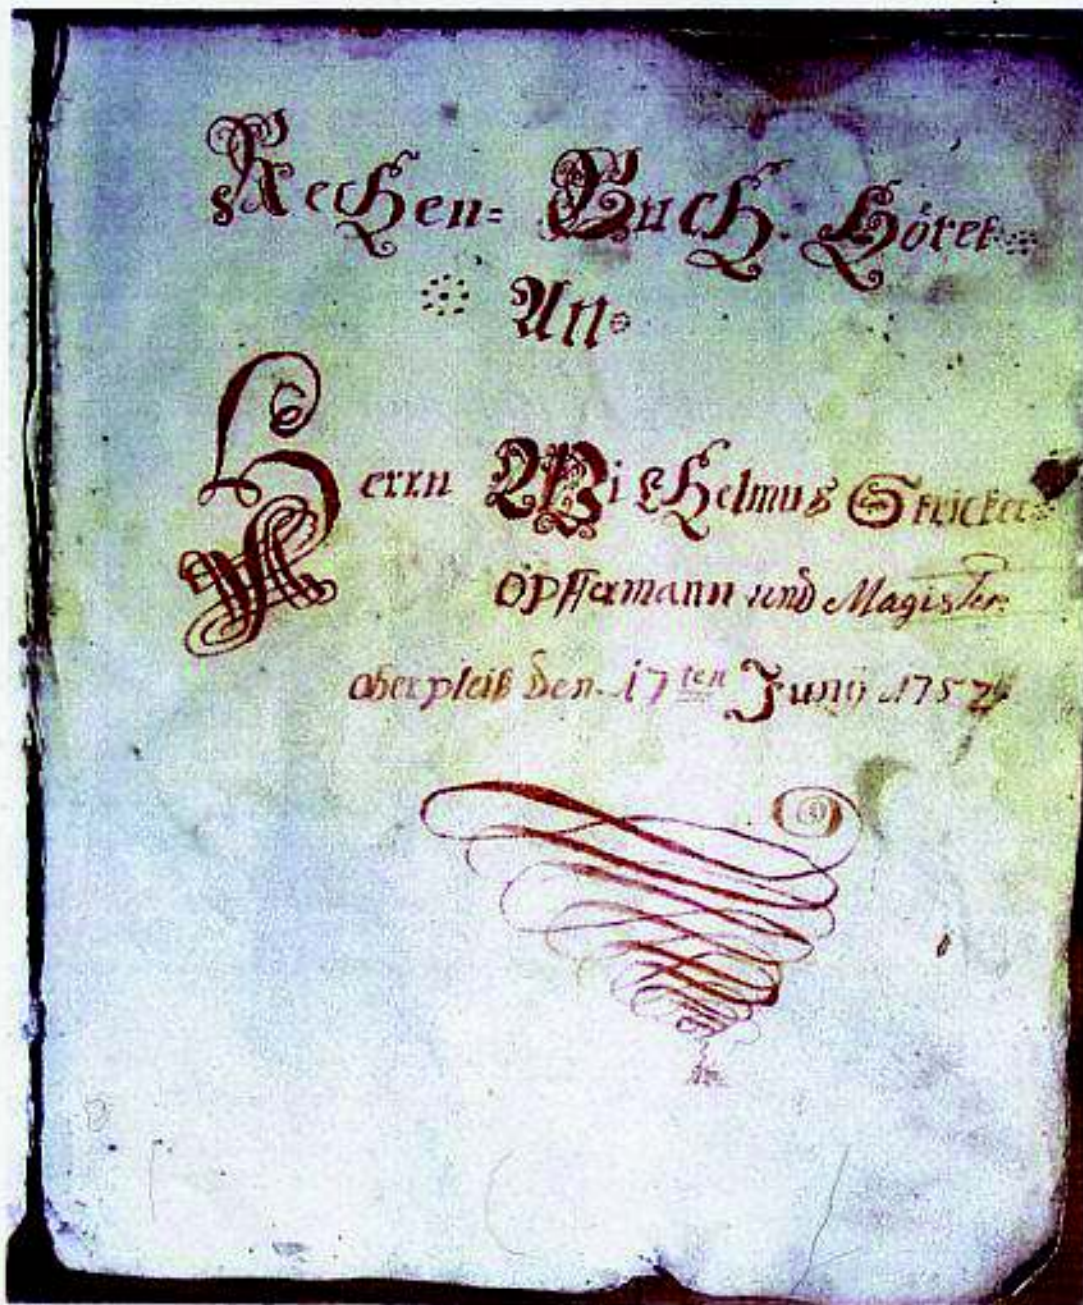 Rechen= Buch. Höret
An
Herrn Wilhelmus Stricker
Opffermann und Magister
oberpleiß den 17ten Junÿ 1757